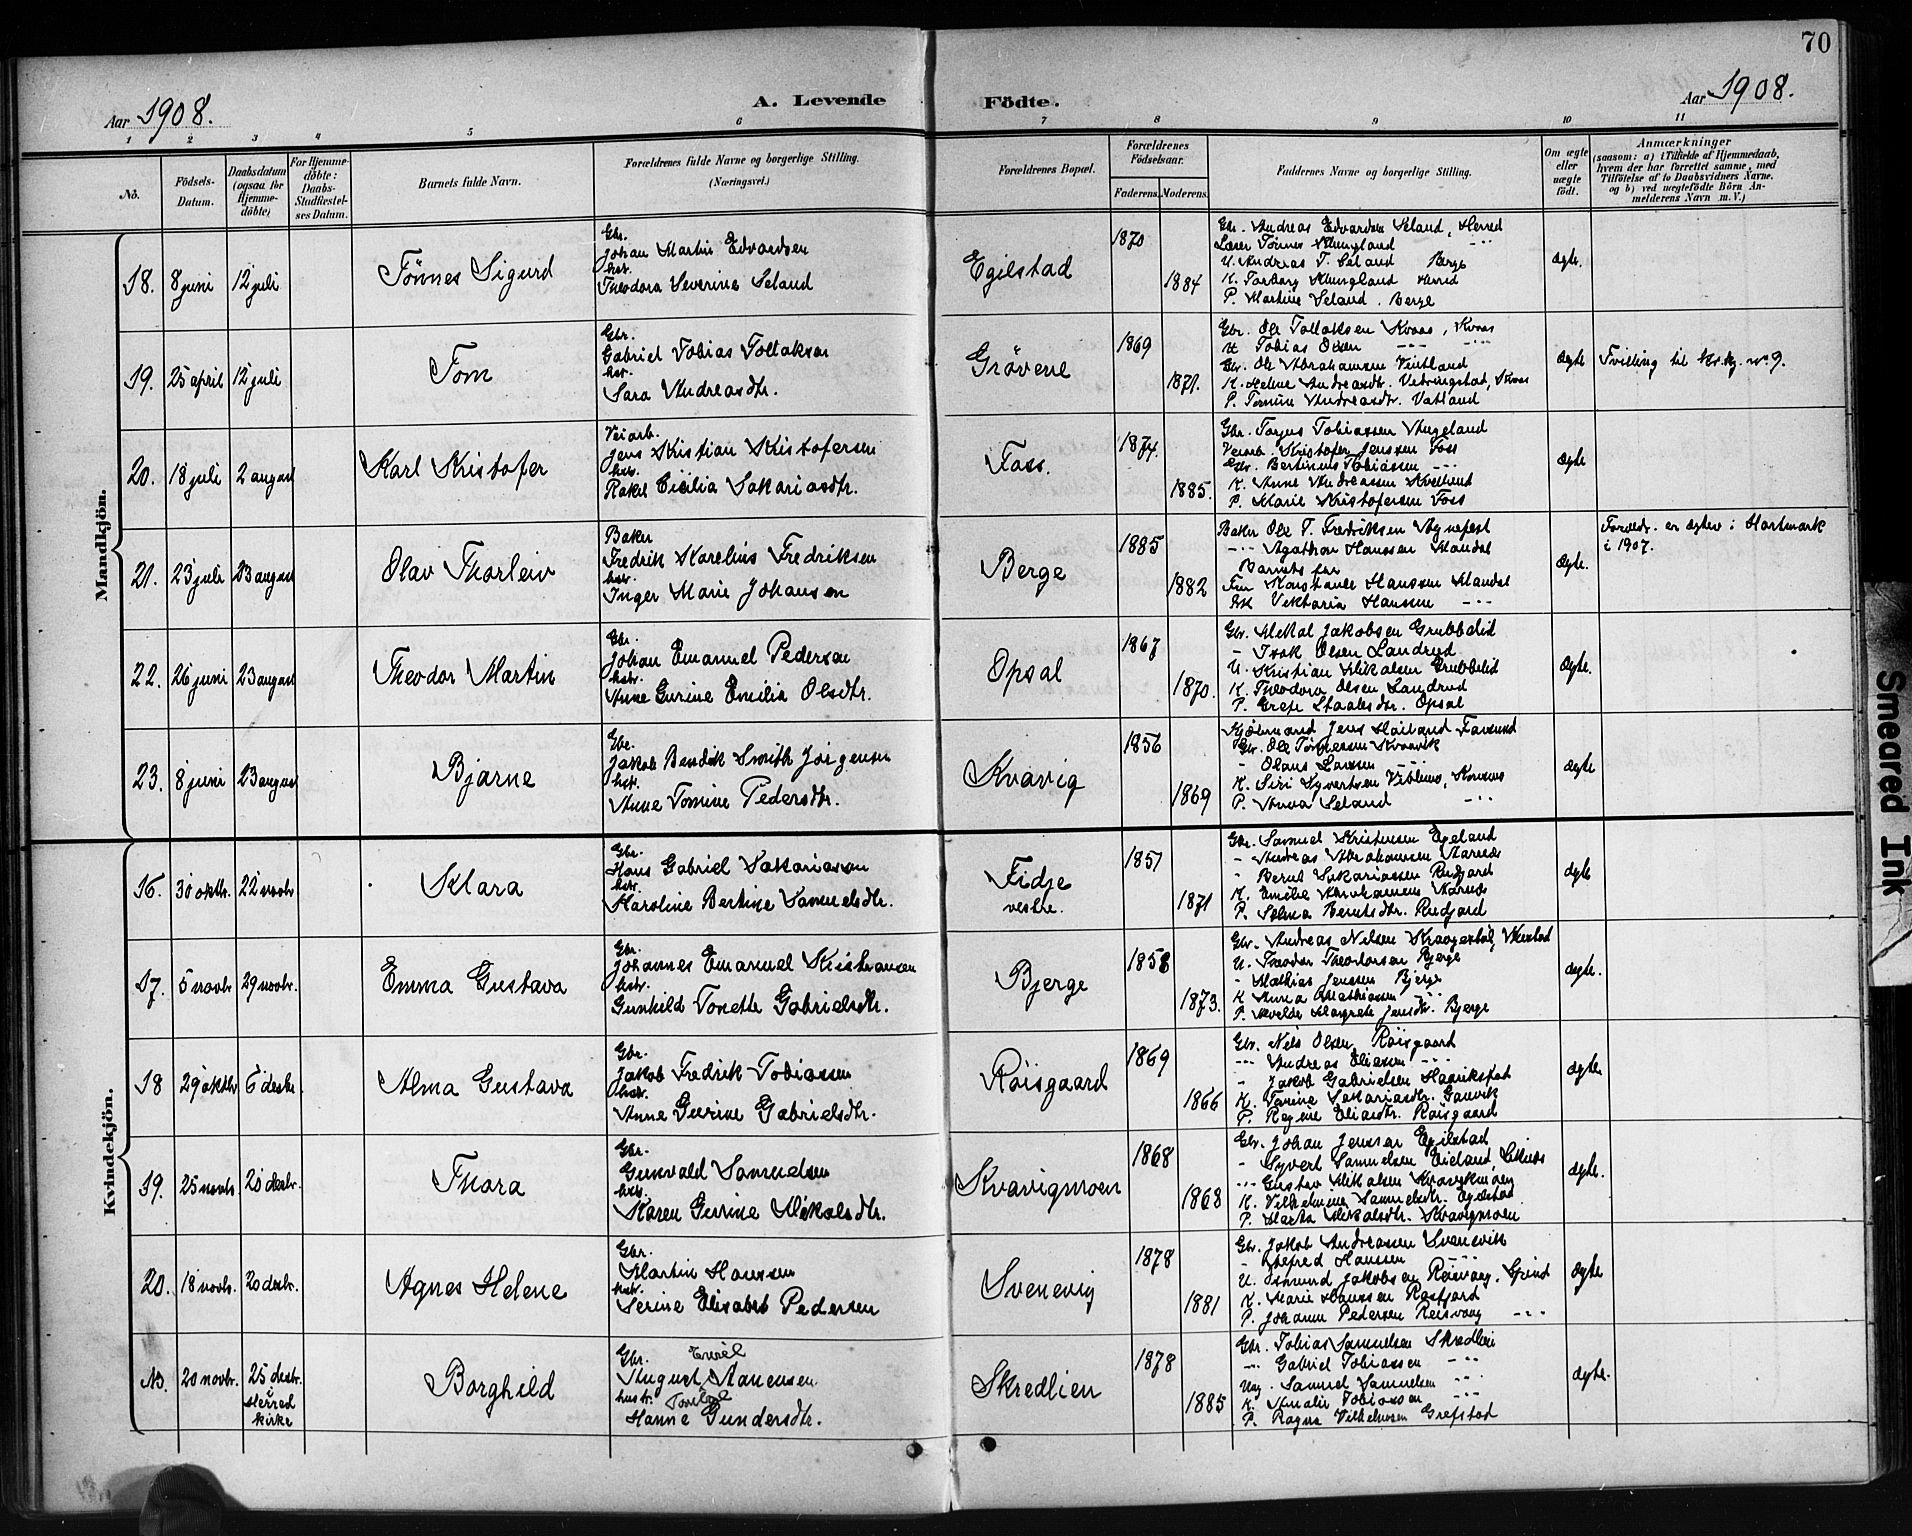 70
Aar 1908.
A. Levende Födte.
Aar 1908.
1 2 3 4 5 6 7 8 9 10 11
No.
Födsels-Datum.
Daabsdatum (ogsaa for Hjemme-döbte)
For Hjemme-döbte: Daabs-Stadfæstel-ses Datum.
Barnets fulde Navn.
Forældrenes fulde Navne og borgerlige Stilling.
(Næringsvei.)
Forældrenes Bopæl.
Forældrenes Födselsaar.
Faderens. Moderens.
Faddernes Navne og borgerlige Stilling.
Om ægte eller uægte födt.
Anmærkninger
(saasom: a) i Tilfælde af Hjemmedaab,
hvem der har forrettet samme, med
Tilföielse af to Daabsvidners Navne,
og b) ved uægtefödte Börn An-
melderens Navn m. V.)
Mandkjön.
18. 8 juni 12 juli Tönnes Sigurd
Gbr.
Johan Martin Edvardsen
hst.
Theodora Severine Seland
Egilstad 1870 1884
Gbr. Andreas Edvardsen Seland, Herred
Lærer Tönnes Klungland -"-
U. Andreas T. Seland Berge
K. Torborg Klungland Herred
P. Martine Seland. Berge
ægte.
19. 25 april 12 juli Tom
Gbr.
Gabriel Tobias Tollaksen
hst.
Sara Andreasdtr.
Grövene 1869 1871.
Gbr. Ole Tollaksen Kvaas, Kvaas
U Tobias Olsen -"- -"-
Gbr. Ole Abrahamsen
K. Helene Andreasdtr.
P. Tomine Andreasdtr. Vatland
ægte
Tvilling til kv.kj. no 9.
20. 18 juli 2 august Karl Kristofer
Veiarb.
Jens Kristian Kristofersen
hst.
Rakel Cicilia Sakariasdtr.
Foss. 1874. 1885.
Gbr. Torjus Tobiassen Augeland
Veiarb. Kristofer Jenssen Foss
Gbr. Bertinius Tobiassen -"-
K. Anne Andreassen
P. Marie Kristofersen Foss
ægte
21. 23 juli 23 august Olav Thorleiv
Baker
Fredrik Karelius Fredriksen
hst.
Inger Marie Johansen
Berge 1885 1882
Baker Ole T. Fredriksen Agnefest
-"- Agathon Hanssen Mandal
Barnets far
Fru Konstance Hanssen Mandal
Viktoria Hanssen -"-
ægte.
Foreldr. er ægtev. i Hartmark
i 1907.
22. 26 juni 23 august Theodor Martin
Gbr.
Johan Emanuel Pedersen
hst.
Anne Gurine Emilia Olsdtr.
Opsal 1867 1870.
Gbr. Mikal Jakobsen Grubbelid
- Isak Olsen Landrud
U. Kristian Mikalsen Grubbelid
K. Theodora Olsen Landrud
P. Grete Staalesdtr. Opsal
ægte.
23. 8 juni 23 august Bjarne
Gbr.
Jakob Bendik Smith Jörgensen
hst.
Anne Tomine Pedersdtr.
Kvavig 1856 1869
Kjöbmand Jens Hailand Farsund
Gbr. Ole Tönnessen Kvavik
- Olaus Larssen -"-
K. Siri Syvertsen
P. Anna Seland -"-
ægte
Kvindekjön.
16. 30 oktbr. 22 novbr. Klara
Gbr.
Hans Gabriel Sakariassen
hst.
Karoline Bertine Samuelsdtr.
Fidje
vestre. 1851 1871
Gbr. Samuel Kristensen Egeland
- Andreas Abrahamsen
- Bernt Sakariassen Rudjord
K. Emelie Abrahamsen
P. Selma Berntsdtr. Rudjord
ægte
17. 5 novbr 29 novbr. Emma Gustava
Gbr.
Johannes Emanuel Kristiansen
hst.
Gunhild Tonette Gabrielsdtr.
Bjerge 1858 1873.
Gbr. Andreas Nilsen
U. Theodor Theodorsen Bjerge
- Mathias Jenssen Bjerge
K Anna Mathiassen -"-
P. Margrete Jensdtr. Bjerge
ægte.
18 29 oktbr 6 desbr Alma Gustava
Gbr.
Jakob Fredrik Tobiassen
hst.
Anne Gurine Gabrielsdtr.
Röisgaard 1869 1866
Gbr. Nils Olsen Röisgaard
-"- Andreas Eliassen -"-
- Jakob Gabrielsen
K. Tomine Sakariasdtr.
P. Regine Eliasdtr. Röisgaard
ægte
19. 25 novbr. 20 desbr. Thora
Gbr.
Gunvald Samuelsen
hst.
Karen Gurine Mikalsdtr.
Kvavigmoen 1868 1868
Gbr. Johan Jenssen Egilstad
- Syvert Samuelsen
-"- Gustav Mikalsen Kvavigmoen
K. Vilhelmine Samuelsdtr. Egilstad
P. Marta Mikalsdtr. Kvavigmoen
ægte.
20. 18 novbr. 20 desbr. Agnes Helene
Gbr.
Martin Hanssen
hst.
Serine Elisabet Pedersen
Svenevig 1878 1881
Gbr. Jakob Andreassen Svenevik
Hanssen -"-
U. Jakobsen
K. Marie Hanssen Rosfjord
P. Johanne Pedersen -"-
ægte
20 novbr. 25 desbr.
Herred
kirke
Borghild
Gbr. Emil
August Aanensen
hustr. Tomine
Hanne Gundersdtr.
Skredlien 1878 1885
Gbr. Tobias Samuelsen Skredlien
-"- Gabriel Tobiassen -"-
Ung. Samuel Samuelsen -"-
K. Amalie Tobiassen -"-
P. Ragna Vilhelmsen Grefstad
ægte.
Smeared Ink